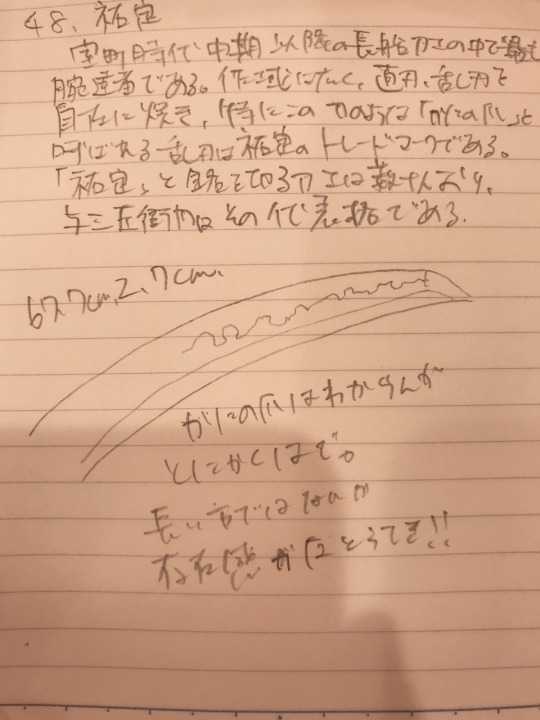 48、祐定
室町時代中期以降の長船刀工の中で最も
腕達者である。作域は広く、直刃、乱刃を
自在に焼き、特にこの刀のように「かにの爪」と
呼ばれる乱刃は祐定のトレードマークである。
「祐定」と銘をきる刀工は数十人おり、
与三左衛門はその代表格である。
67.7cm,2.7cm.
かにの爪はわからんが
とにかくはで。
長い方ではないが
存在感がばとうてき!!